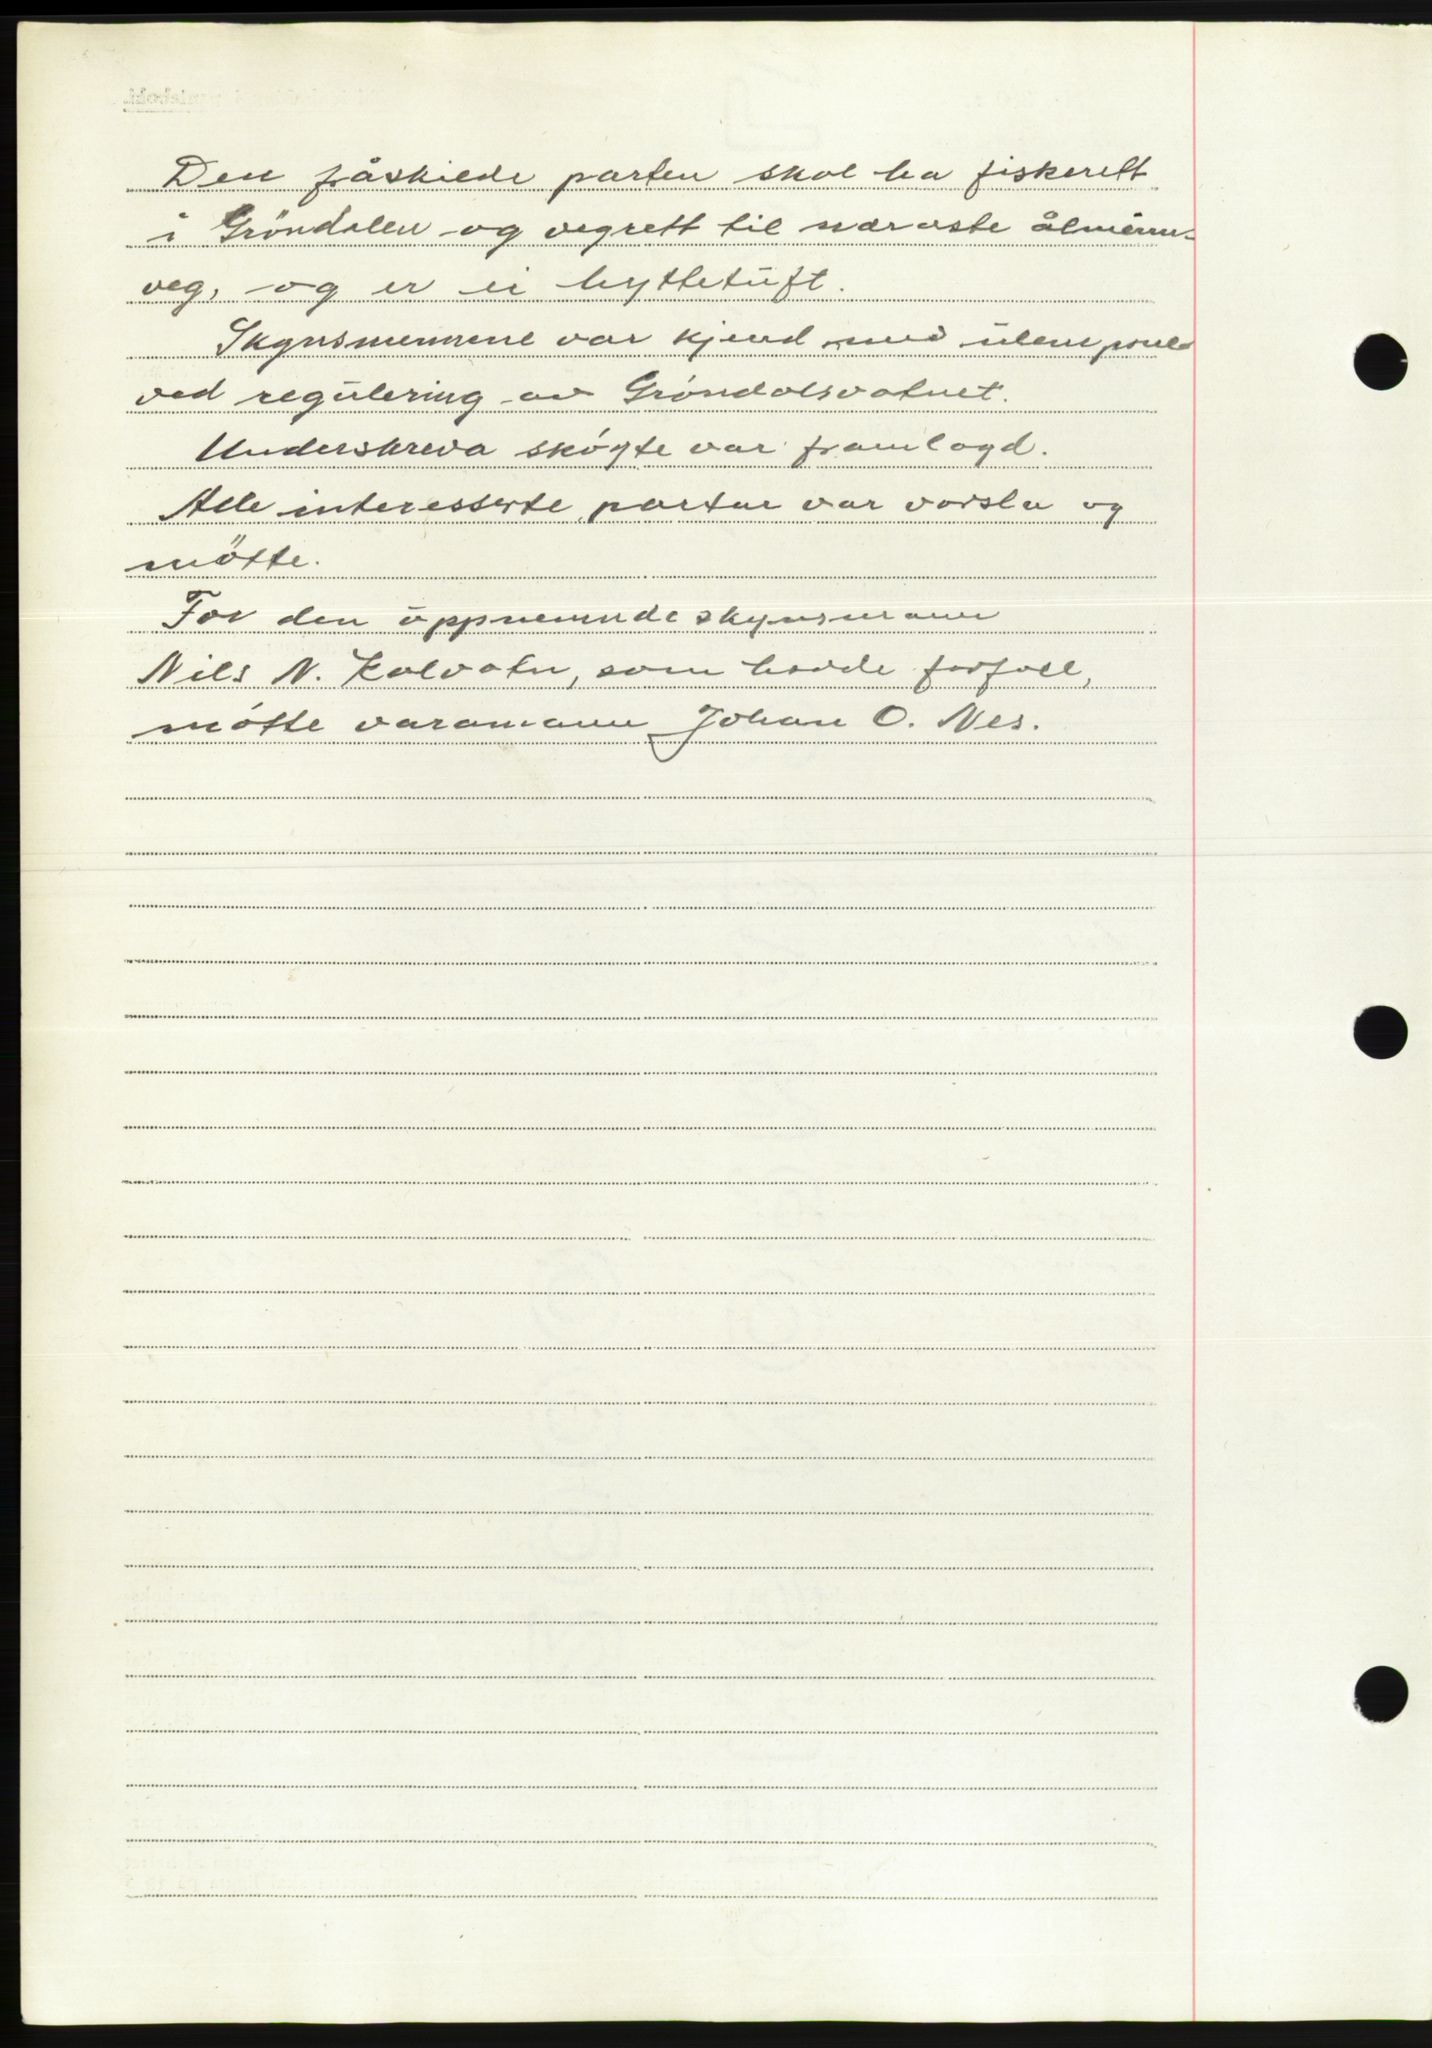 Den fråskilde parten skal ha fiskerett
i Gröndalen og vegrett til næraste ålmenn-
veg, og er ei hyttetuft.
Skynsmennene var kjend med
ved regulering av Gröndalsvatnet.
Underskreva skøyte var framlagd.
Alle interesserte partar var varsla og
møtte.
For den oppnemnde skynsmann
Nils N. Kalvatn, som hadde forfall,
møtte varamann Johan O. Nes.